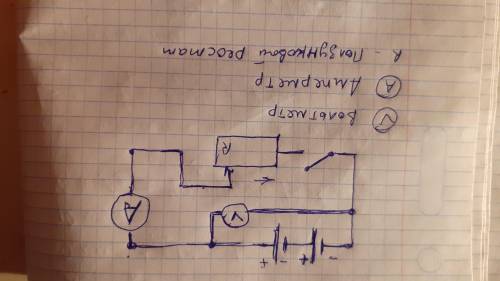 R
V
A
+ - + -
V Вольтметр
A Амперметр
R - Ползунковой реостат